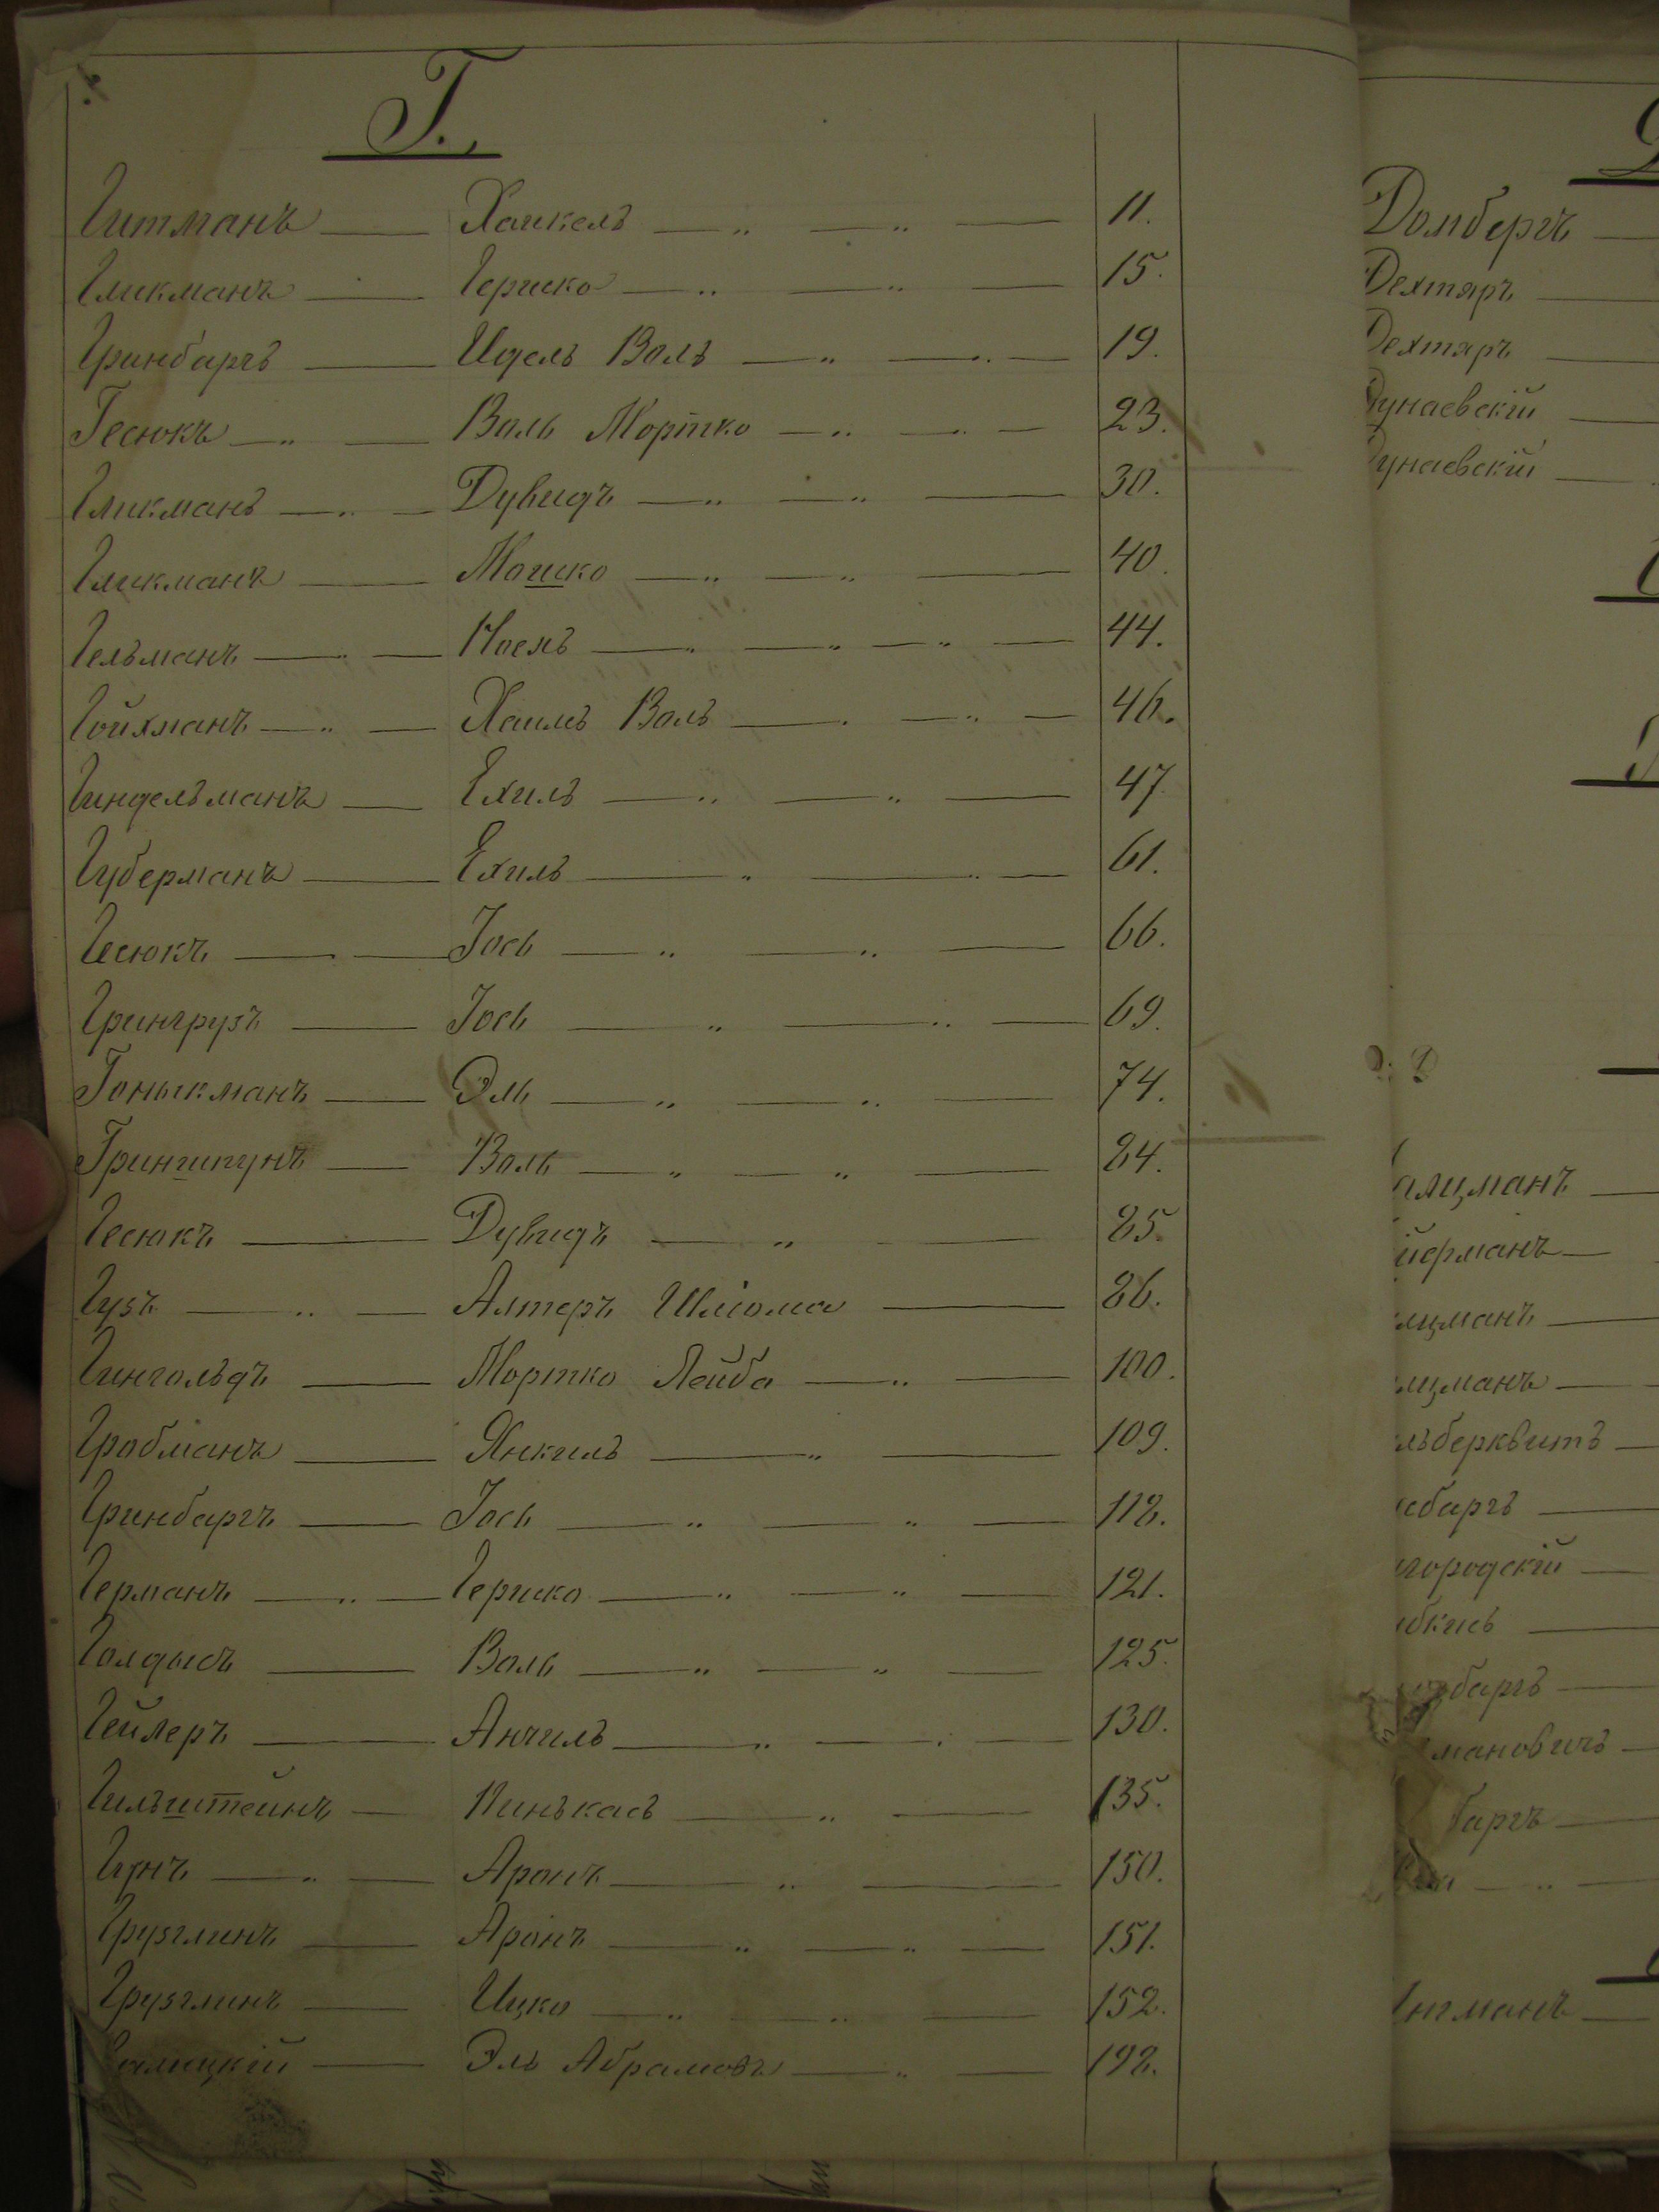 Г.
Гитманъ — Хаикель — „ — „ — 11.
Гликманъ — Гершко — „ — „ — 15.
Гринбаргъ — Идель Воль — „ — „ — 19.
Гесюкъ — „ — Воль Мортко — „ — „ — 23.
Гликманъ — „ — Дувидъ — „ — „ — 30.
Гликманъ — Мошко — „ — „ — 40.
Гельманъ — „ — Ноехъ — „ — „ — „ — 44.
Гойхманъ — „ — Хаимъ Воль — „ — „ — 46.
Гиндельманъ — Ехиль — „ — „ — 47.
Губерманъ — Ехиль — „ — „ — 61.
Гесюкъ — „ — Іось — „ — „ — 66.
Грингрузъ — Іось — „ — „ — 69.
Гоныкманъ — Эль — „ — „ — 74.
Гриншпунъ — Воль — „ — „ — 84.
Гесюкъ — Дувидъ — „ — 85.
Гузъ — „ — Алтеръ Шліома — 86.
Гингольдъ — Мортко Лейба — „ — 100.
Гробманъ — Янкиль — „ — 109.
Гринбаргъ — Іось — „ — „ — 112.
Германъ — „ — Гершко — „ — „ — 121.
Голдысъ — Воль — „ — „ — 125.
Гейлеръ — Анчиль — „ — „ — 130.
Гильштейнъ — Пинькасъ — „ — 135.
Гунъ — „ — Аронъ — „ — 150.
Грузглинъ — Аронъ — „ — „ — 151.
Грузглинъ — Ицко — „ — „ — 152.
алицкій — Эль Абрамовъ — „ — 192.
Домбергъ —
Дехтяръ —
Дехтяръ —
Дунаевскій —
Дунаевскій —
алцманъ —
йерманъ —
лцманъ —
лцманъ —
льберквитъ —
баргъ —
городскій —
бкисъ —
баргъ —
мановичъ —
баргъ —
нгманъ —